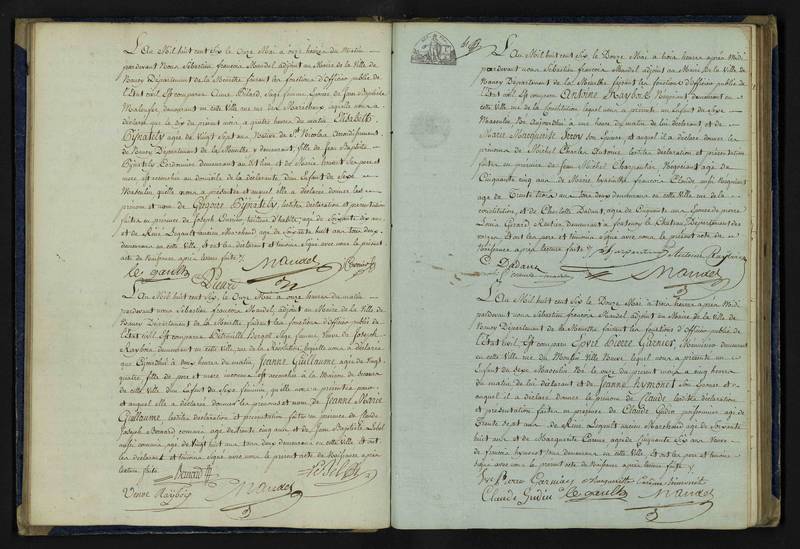 L'An Mil huit cent Six le Onze Mai à onze heures du Matin
pardevant Nous Sébastien françois Mandel adjoint au Maire de la Ville de
Nancy Département de la Meurthe faisant les fonctions d'Officier public de
l'Etat civil Est comparue Anne Pierd, Sage femme Epouse de Jean Baptiste
demeurant en cette ville rue des Maréchaux laquelle nous a
déclaré que le dix du présent mois à quatre heures du matin Elisabeth
Bijnately agée de vingt sept ans Native de St Nicolas Arrondissement
de Nancy Département de la Meurthe y demeurant, fille de Jean Baptiste
Bijnately Cordonnier demeurant au dit lieu et de Marie ses pere et
mere est accouchée au domicile de la déclarante d'un Enfant de Sexe
Masculin, qu'elle nous a présenté et auquel elle a déclaré donner les
prénom et nom de Grégoire Bijnately, lesdites déclaration et présentation
faites en présence de Joseph tailleur d'habits, agé de Soixante dix ans
et de René Legault ancien Marchand agé de Soixante huit ans tous deux
demeurans en cette Ville, Et ont les déclarant et témoins Signé avec nous le présent
acte de Naissance après lecture faite
le gault Mandel
Pierd
L'An Mil huit cent Six, le Onze Mai à onze heures du matin
pardevant nous Sébastien françois Mandel, adjoint au Maire de la Ville de
Nancy Département de la Meurthe, faisant les fonctions d'Officier public de
l'Etat civil Est comparue Sage femme Veuve de Joseph
Raybois demeurant en cette ville, rue de la laquelle nous a déclaré
que Cejourd'hui à deux heures du matin, Jeanne Guillaume agée de vingt
quatre, fille de pere et mere inconnus est accouchée à la Maison de Secours
de cette ville d'un Enfant de Sexe féminin, qu'elle nous a présentée
et auquel elle a déclaré donner les prénoms et nom de Jeanne Marie
Guillaume lesdites déclaration et présentation faites en présence de Claude
Joseph Bernard commis agé de trente cinq ans et de Jean Baptiste Lebel
aussi commis agé de Vingt huit ans tous deux demeurans en cette Ville Et ont
les déclarant et témoins Signé avec nous le présent acte de Naissance après
lecture faite
Bernard Le Bel
Veuve Raybois Mandel
L'An Mil huit cent Six, le Douze Mai à trois heures après Midi
pardevant nous Sébastien françois Mandel adjoint au Maire de la Ville de
Nancy Département de la Meurthe faisant les fonctions d'Officier public de
l'Etat civil Est comparu Antoine Raybois Négociant demeurant en
cette Ville rue de la Constitution lequel nous a présenté un Enfant de Sexe
Masculin Né Aujourd'hui à une heure du matin de lui déclarant et de
Marie Marguerite son Epouse et auquel il a déclaré donner les
prénoms de Michel Charles Antoine lesdites déclaration et présentation
faites en présence de Jean Michel Charpentier Négociant agé de
Cinquante cinq ans de Marie françois Claude Négociant
agé de Trente trois ans tous deux demeurans en cette Ville rue de la
constitution, et de Charlotte Dadant, agée de Cinquante ans Epouse de pierre
Louis Gérard Rentier, demeurant à fontenoy le Chateau Département des
vosges Et ont les pere et témoins Signé avec nous le présent acte de
Naissance après lecture faite
Charpentier Antoine Raybois
C. Dadant Mandel
L'An Mil huit cent Six, le Douze Mai à trois heures après Midi
pardevant nous Sébastien françois Mandel, adjoint au Maire de la Ville de
Nancy Département de la Meurthe faisant les fonctions d'Officier public de
l'Etat civil Est comparu Yves Pierre Garnier, demeurant
en cette Ville rue du Moulin Ville Neuve lequel nous a présenté un
Enfant de Sexe Masculin Né le onze du présent mois à cinq heures
du matin de lui déclarant et de Jeanne Aymonet Son Epouse et
auquel il a déclaré donner le prénom de Claude lesdites déclaration
et présentation faites en présence de Claude Gudin poissonnier agé de
Trente Sept ans de René Legault ancien Marchand agé de Soixante
huit ans et de Marguerite Carême agée de Cinquante Six ans Veuve
de francois tous demeurans en cette Ville, Et ont les pere et témoins
Signé avec nous le présent acte de Naissance après lecture faite
Yve Pierre Garnier Marguerite
Claude Gudin Le gault Mandel